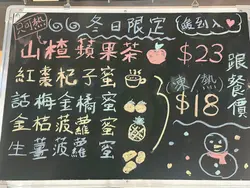 只熱 冬日限定
山楂蘋果茶 $23
紅棗杞子蜜 凍/熱
話梅金橘蜜 $18
金桔菠蘿蜜
生薑菠蘿蜜
跟餐價